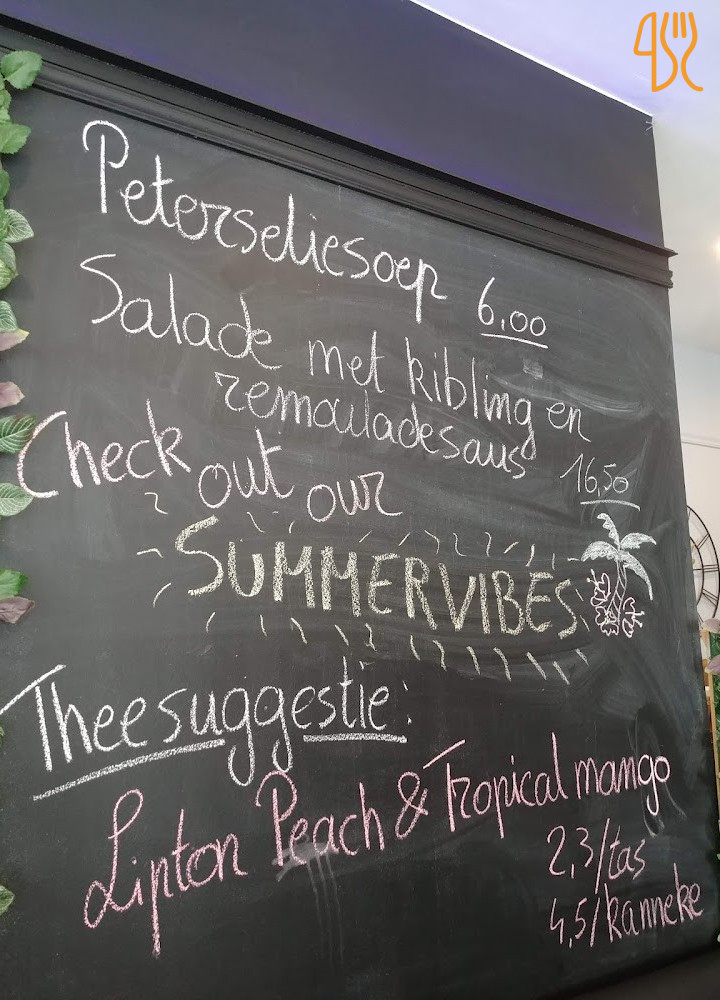 Peterseliesoep 6.00
Salade met kibling en
remouladesaus 16,50
Check out our
SUMMERVIBES
Theesuggestie:
Lipton Peach & Tropical mango
2,3/tas
4,5/kanneke